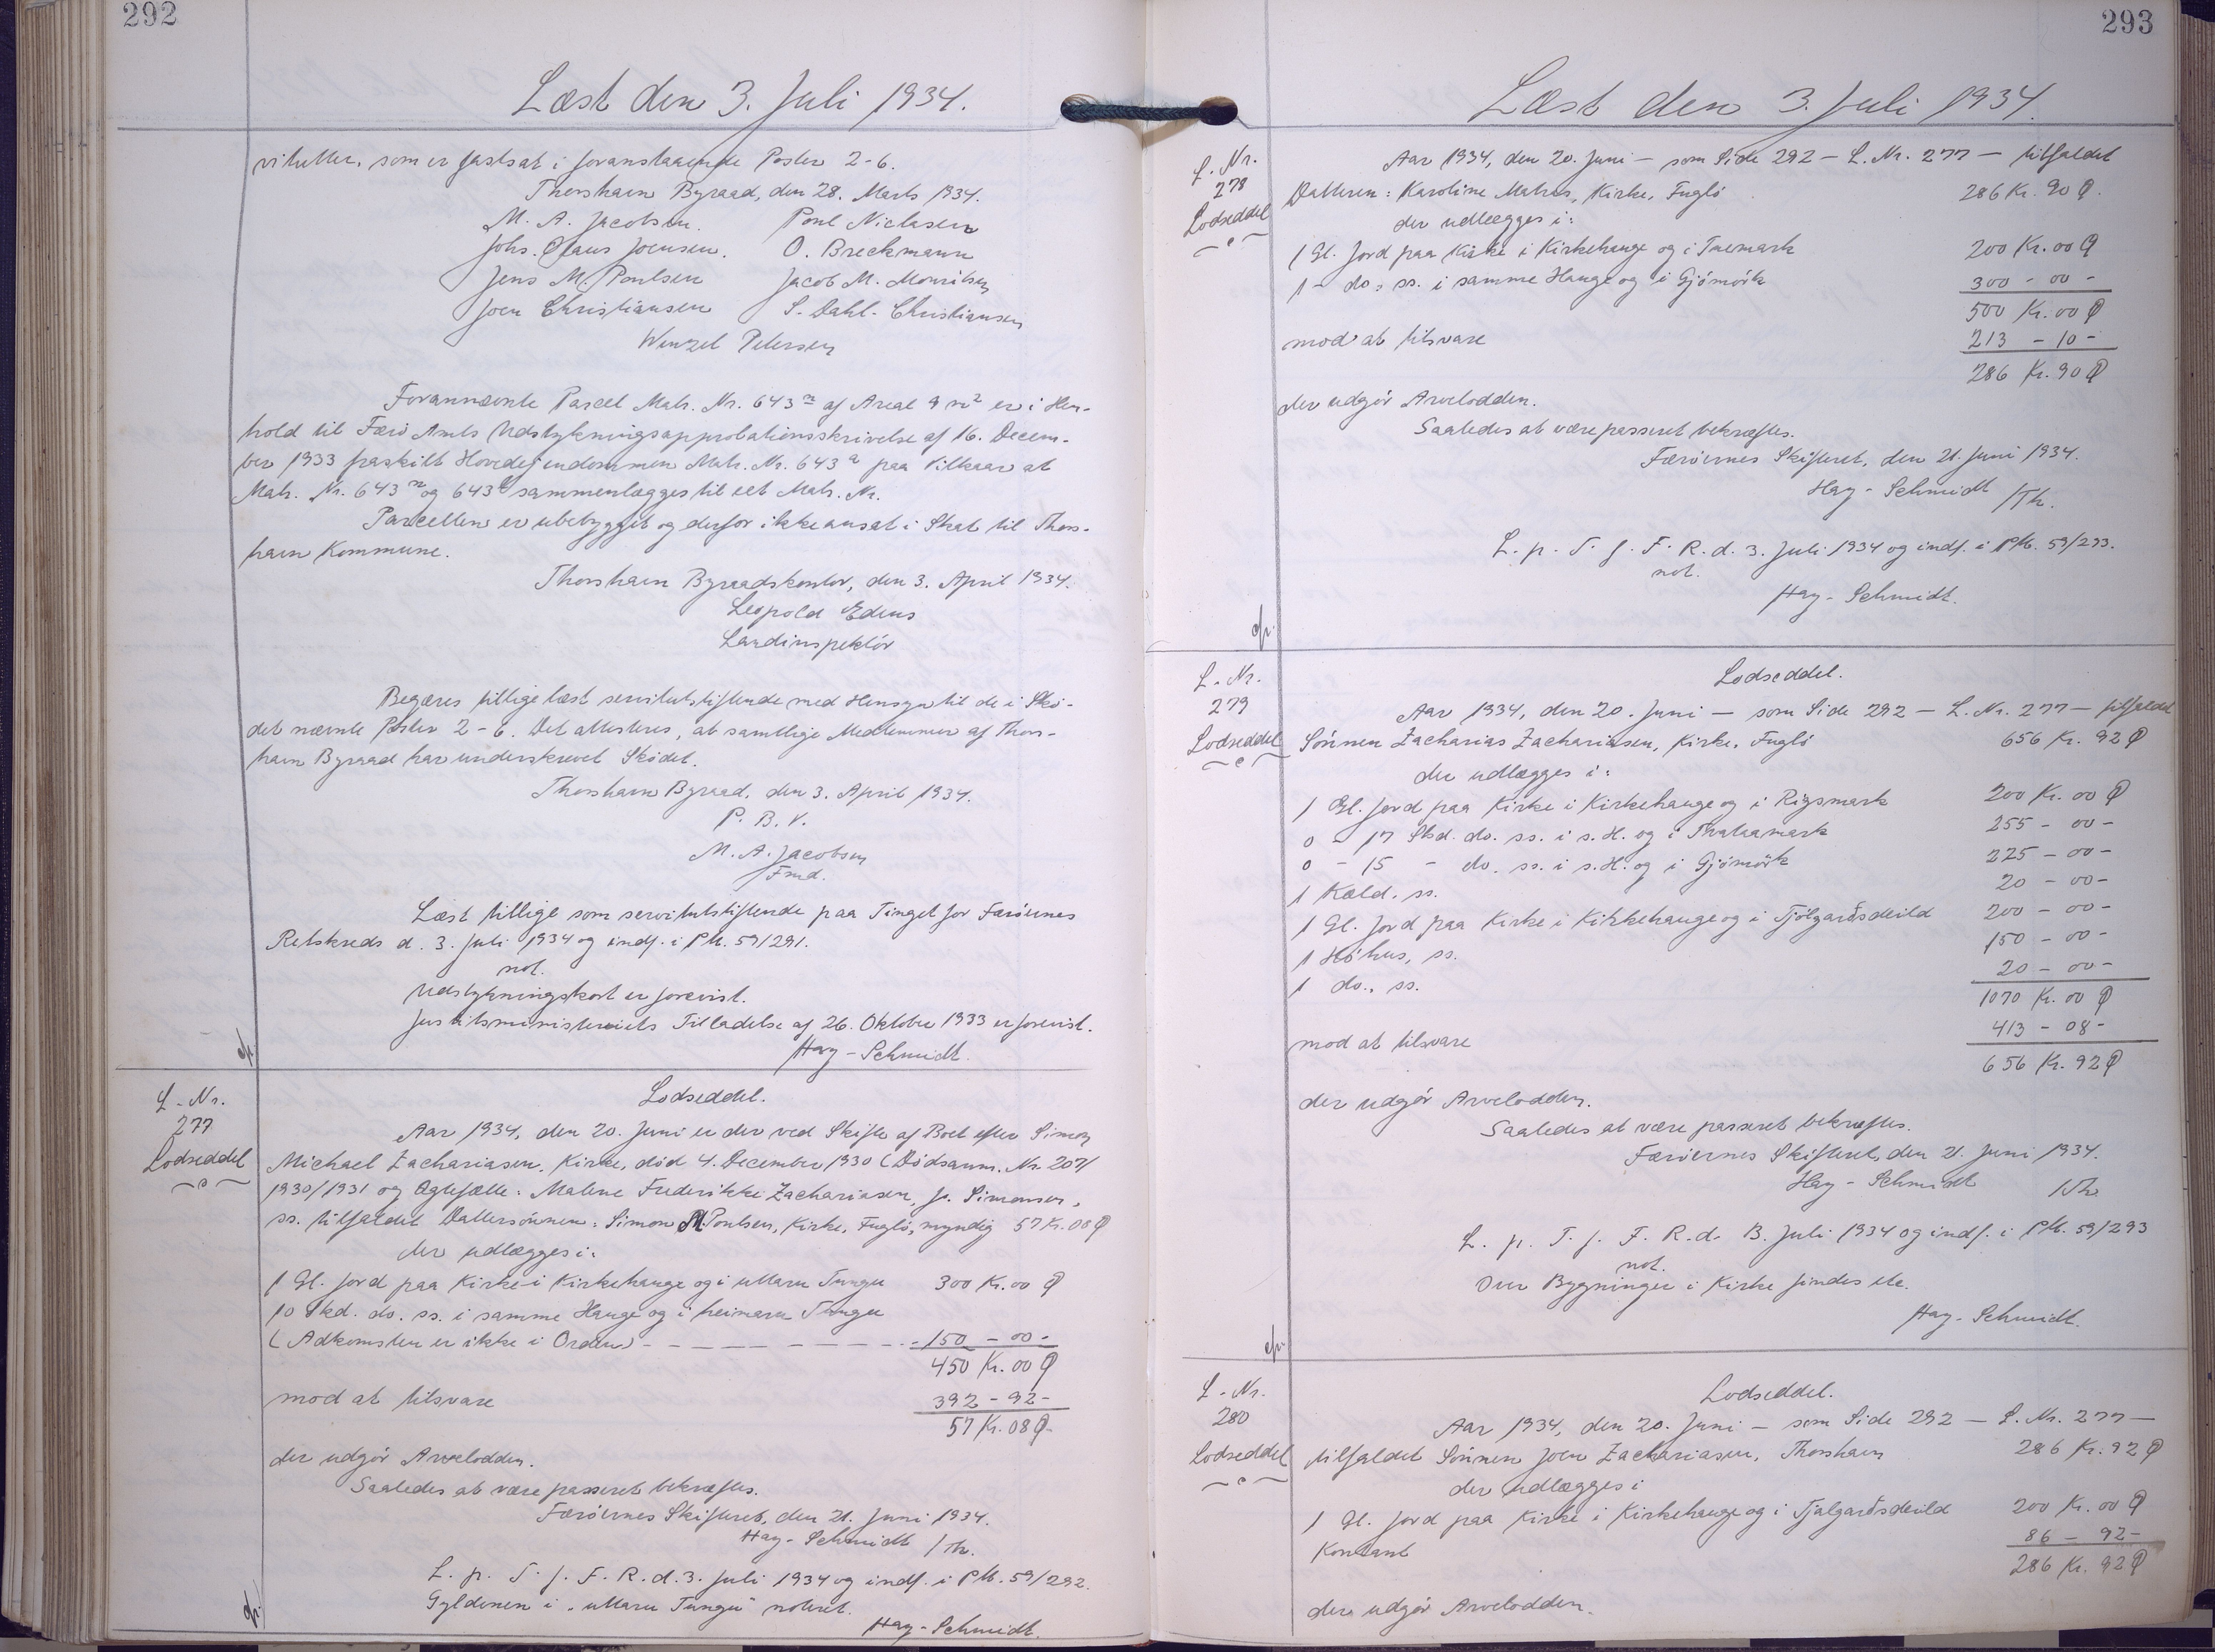 292
Læst den 3. Juli 1934.
vitutter, som er fastsat i foranstaaende Poster 2-6.
Thorshavn Byraad, den 28. Marts 1934.
M. A. Jacobsen. Poul Niclasen
Johs. Olaus Joensen. O. Breckmann
Jens M. Poulsen Jacob M. Mouritsen
Joen Christiansen S. Dahl-Christiansen
Wenzel Petersen
Forannævnte Parcel Matr. Nr. 643 m af Areal 9 m² er i Hen-
hold til Færø Amts Udstykningsapprobationsskrivelse af 16. Decem-
ber 1933 fraskilt Hovedejendommen Matr. Nr. 643 a paa Vilkaar at
Matr. Nr. 643 m og 643 sammenlægges til eet Matr. Nr.
Parcellen er ubebygget og derfor ikke ansat i Skat til Thors-
havn Kommune.
Thorshavn Byraadskontor, den 3. April 1934.
Leopold Edens
Landinspektör
Begæres tillige læst servitutstiftende med Hensyn til de i Skø-
det nævnte Poster 2-6. Det attesteres, at samtlige Medlemmer af Thors-
havn Byraad har underskrevet Skødet.
Thorshavn Byraad, den 3. April 1934.
P. B. V.
M. A. Jacobsen
Fmd.
Læst tillige som servitutstiftende paa Tinget for Færöernes
Retskreds d. 3. Juli 1934 og indf. i PM. 59/291.
not.
Udstykningskort er forevist.
Justitsministeriets Tilladelse af 26. Oktober 1933 er forevist.
Hay-Schmidt.
L. Nr.
277
Lodseddel
Lodseddel.
Aar 1934, den 20. Juni er der ved Skifte af Boet efter Simon
Michael Zachariasen, Kirke, död 4. December 1930 (Dödsanm. Nr. 207/
1930/1931 og Ægtefælle: Malene Frederikke Zachariasen, f. Simonsen,
ss. tilfaldet Dattersönnen: Simon M. Poulsen, Kirke, Fuglö, myndig 57 Kr. 08 Ø
der udlægges i:
1 Gl. Jord paa Kirke i Kirkehauge og i uttaru Tungu 300 Kr. 00 Ø
10 Skd. do. ss. i samme Hauge og i heimaru Tungu
(Adkomsten er ikke i Orden) - - - - - - - 150 - 00 -
450 Kr. 00 Ø
mod at tilsvare 392 - 92 -
57 Kr. 08 Ø
der udgör Arvelodden.
Saaledes at være passeret bekræftes.
Færöernes Skifteret, den 21. Juni 1934.
Hay-Schmidt /Th.
L. p. T. f. F. R. d. 3. Juli 1934 og indf. i PM. 59/292.
Gyldenen i "uttaru Tungu" noteret.
Hay-Schmidt.
293
Læst den 3. Juli 1934.
L. Nr.
278
Lodseddel
Aar 1934, den 20. Juni - som Side 292 - L. Nr. 277 - tilfaldet
Datteren: Karoline Matras, Kirke, Fuglö 286 Kr. 90 Ø.
der udlægges i:
1 Gl. Jord paa Kirke i Kirkehauge og i Tuemark 200 Kr. 00 Ø
1 - do., ss. i samme Hauge og i Gjómörk 300 - 00 -
500 Kr. 00 Ø
mod at tilsvare 213 - 10 -
286 Kr. 90 Ø
der udgör Arvelodden.
Saaledes at være passeret bekræftes.
Færöernes Skifteret, den 21. Juni 1934.
Hay-Schmidt /Th.
L. p. T. f. F. R. d. 3. Juli 1934 og indf. i PM. 59/293.
not.
Hay-Schmidt.
L. Nr.
279
Lodseddel
Lodseddel.
Aar 1934, den 20. Juni - som Side 292 - L. Nr. 277 - tilfaldet
Sönnen Zacharias Zachariasen, Kirke, Fuglö 656 Kr. 92 Ø
der udlægges i:
1 Gl. Jord paa Kirke i Kirkehauge og i Rigsmark 200 Kr. 00 Ø
0 - 17 Skd. do. ss. i s. H. og i 255 - 00 -
0 - 15 - do. ss. i s. H. og i Gjómörk 225 - 00 -
1 Kæld. ss. 20 - 00 -
1 Gl. Jord paa Kirke i Kirkehauge og i Tjölgarðsdeild 200 - 00 -
1 Höhus, ss. 150 - 00 -
1 do., ss. 20 - 00 -
1070 Kr. 00 Ø
mod at tilsvare 413 - 08 -
656 Kr. 92 Ø
der udgör Arvelodden.
Saaledes at være passeret bekræftes.
Færöernes Skifteret, den 21. Juni 1934.
Hay-Schmidt /Th.
L. p. T. f. F. R. d. 3. Juli 1934 og indf. i PM. 59/293
not.
Over Bygninger i Kirke findes ete.
Hay-Schmidt.
L. Nr.
280
Lodseddel
Lodseddel.
Aar 1934, den 20. Juni - som Side 292 - L. Nr. 277 -
tilfaldet Sönnen Joen Zachariasen, Thorshavn 286 Kr. 92 Ø
der udlægges i
1 Gl. Jord paa Kirke i Kirkehauge og i Tjalgarðsdeild 200 Kr. 00 Ø
Kontant 86 - 92 -
286 Kr. 92 Ø
der udgör Arvelodden.